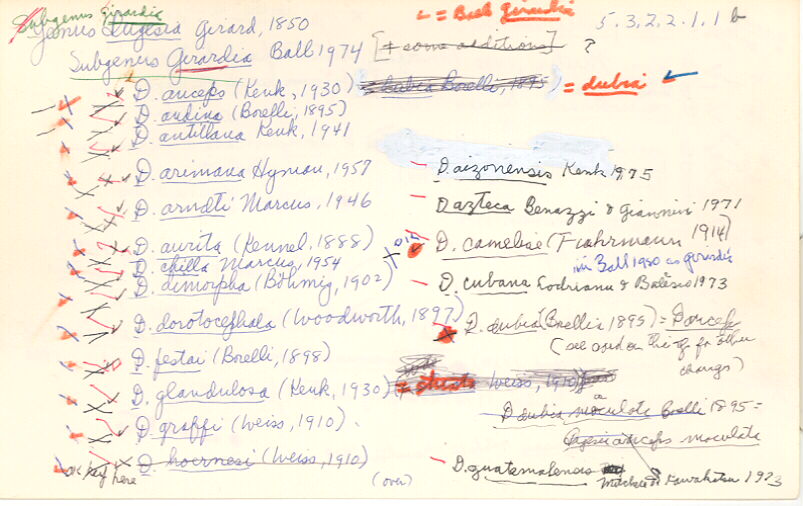 Subgenus Girardia
← = Ball Girardia
5.3.2.2.1.1 b
Genus Dugesia Girard, 1850
Subgenus Girardia Ball 1974 [+ some additions] ?
D. anceps (Kenk, 1930) (= dubia Borelli, 1895) = dubia ←
D. andina (Borelli, 1895)
D. antillana Kenk, 1941
D. arimana Hyman, 1957
D. arizonensis Kenk 1975
D. arndti Marcus, 1946
D azteca Benazzi & Giannini 1971
D. aurita (Kennel, 1888)
D. cameliae (Fuhrmann 1914)
in Ball 1980 as girardia
D. chilla Marcus, 1954
D. dimorpha (Böhmig, 1902)
D. cubana Codrianu & Balcesco 1973
D. dorotocephala (Woodworth, 1897)
D. dubia (Borelli 1895) = D anceps
(see card on this sp for other changes)
D. festai (Borelli, 1898)
D. glandulosa (Kenk, 1930)
Weiss, 1910)
D. dubia maculata Borelli 1895 =
Dugesia anceps maculata
D. graffi (Weiss, 1910).
D. hoernesi (Weiss, 1910)
ok key here
(over)
D. guatemalensis Mitchell & Kawakatsu 1973